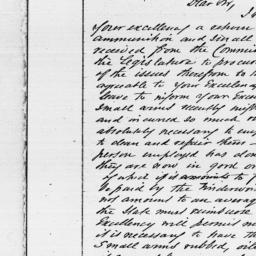 Dear Sir,
I
Your excellency a return
ammunition and Small
received from the Commis
the Legislature to procur
of the issues therefrom to
agreeable to Your Excellency
leave to inform Your Exce
Small arms recently
and incurred so much
absolutely necessary to emp
to clean and repair them
person employed has don
they are now in good or
if it amounts to
be paid by the Underwri
not amount to an average
the State must reimburse
Excellency will permit me
it is necessary to have th
Small arms rubbed, oile